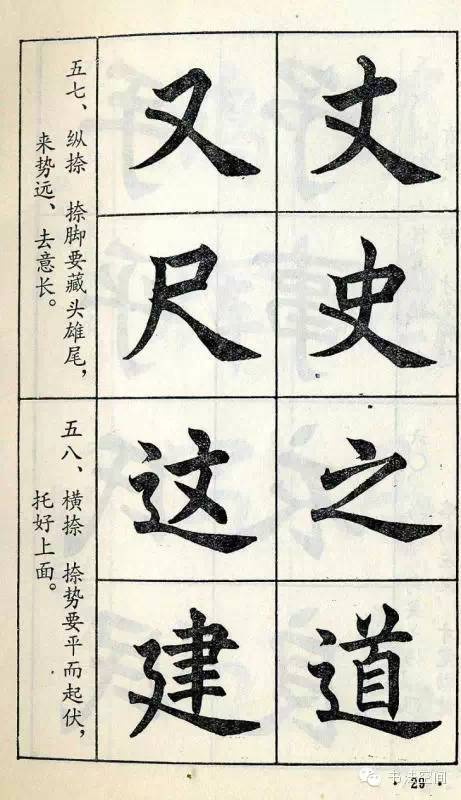 丈又
史尺
五七、纵捺　捺脚要藏头雄尾，
来势远、去意长。
之这
道建
五八、横捺　捺势要平而起伏，
托好上面。
·29·
书法空间